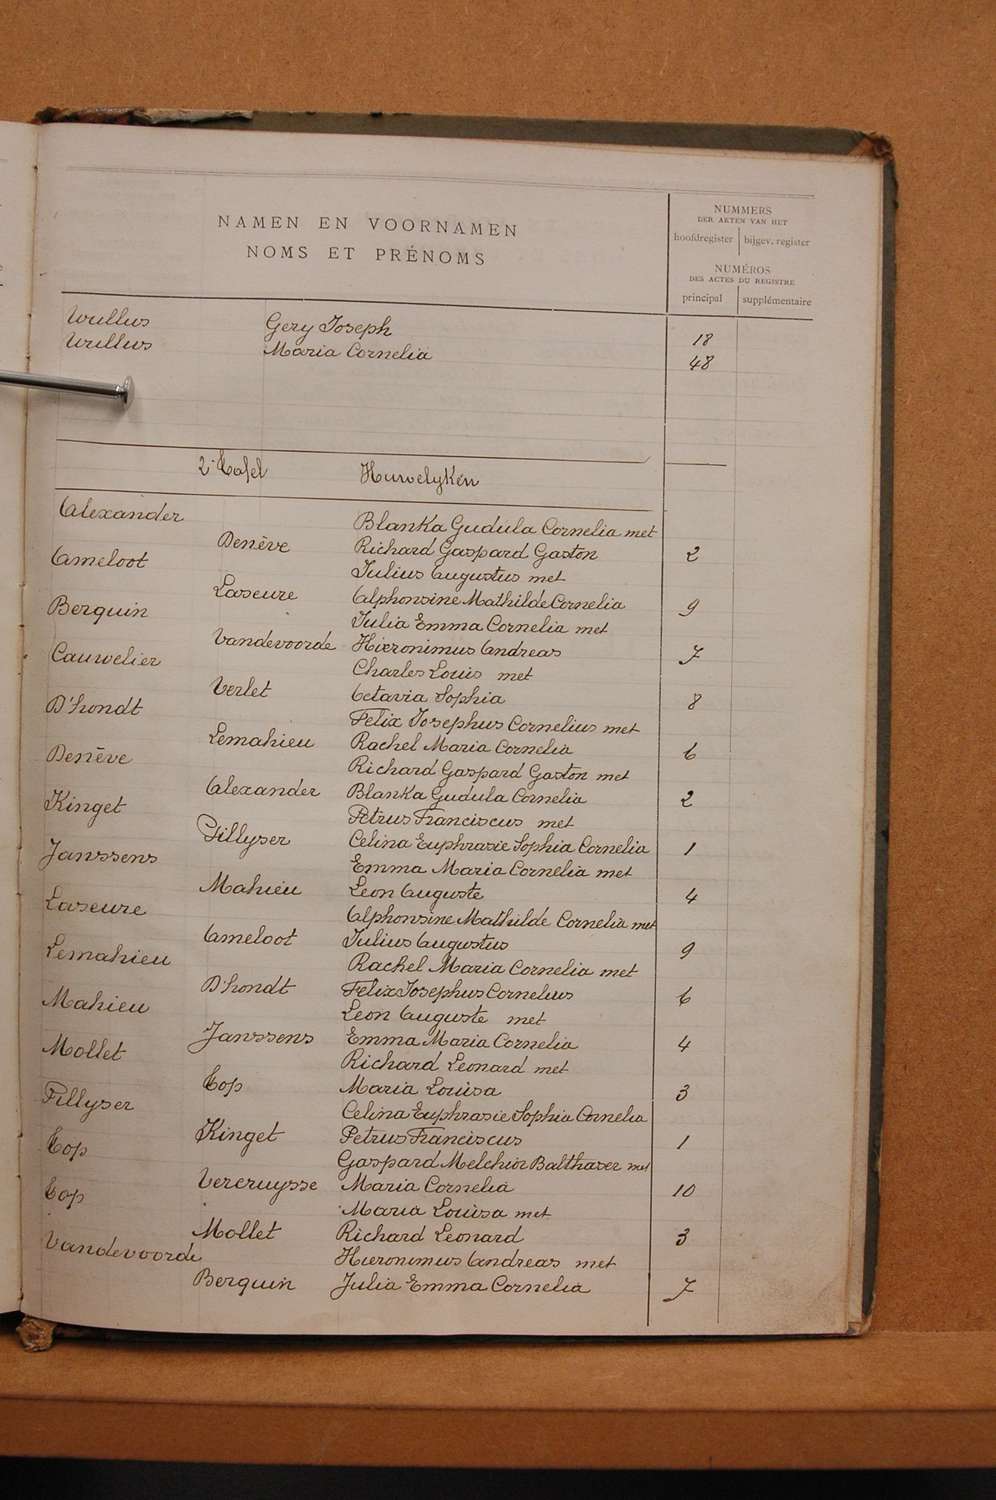 NAMEN EN VOORNAMEN
NOMS ET PRÉNOMS
NUMMERS
DER AKTEN VAN HET
hoofdregister bijgev. register
NUMÉROS
DES ACTES DU REGISTRE
principal supplémentaire
Wullus Gery Joseph 18
Wullus Maria Cornelia 48
2e Tafel Huwelyken
Alexander Blanka Gudula Cornelia met
Denève Richard Gaspard Gaston 2
Ameloot Julius Augustus met
Laseure Alphonsine Mathilde Cornelia 9
Berquin Julia Emma Cornelia met
Vandevoorde Hieronimus Andreas 7
Cauwelier Charles Louis met
Verlet Octavia Sophia 8
D'hondt Felix Josephus Cornelius met
Lemahieu Rachel Maria Cornelia 6
Denève Richard Gaspard Gaston met
Alexander Blanka Gudula Cornelia 2
Kinget Petrus Franciscus met
Fillyser Celina Euphrasie Sophia Cornelia 1
Janssens Emma Maria Cornelia met
Mahieu Leon Auguste 4
Laseure Alphonsine Mathilde Cornelia met
Ameloot Julius Augustus 9
Lemahieu Rachel Maria Cornelia met
D'hondt Felix Josephus Cornelius 6
Mahieu Leon Auguste met
Janssens Emma Maria Cornelia 4
Mollet Richard Leonard met
Top Maria Louisa 3
Fillyser Celina Euphrasie Sophia Cornelia
Kinget Petrus Franciscus 1
Top Gaspard Melchior Balthaser met
Vercruysse Maria Cornelia 10
Top Maria Louisa met
Mollet Richard Leonard 3
Vandevoorde Hieronimus Andreas met
Berquin Julia Emma Cornelia 7